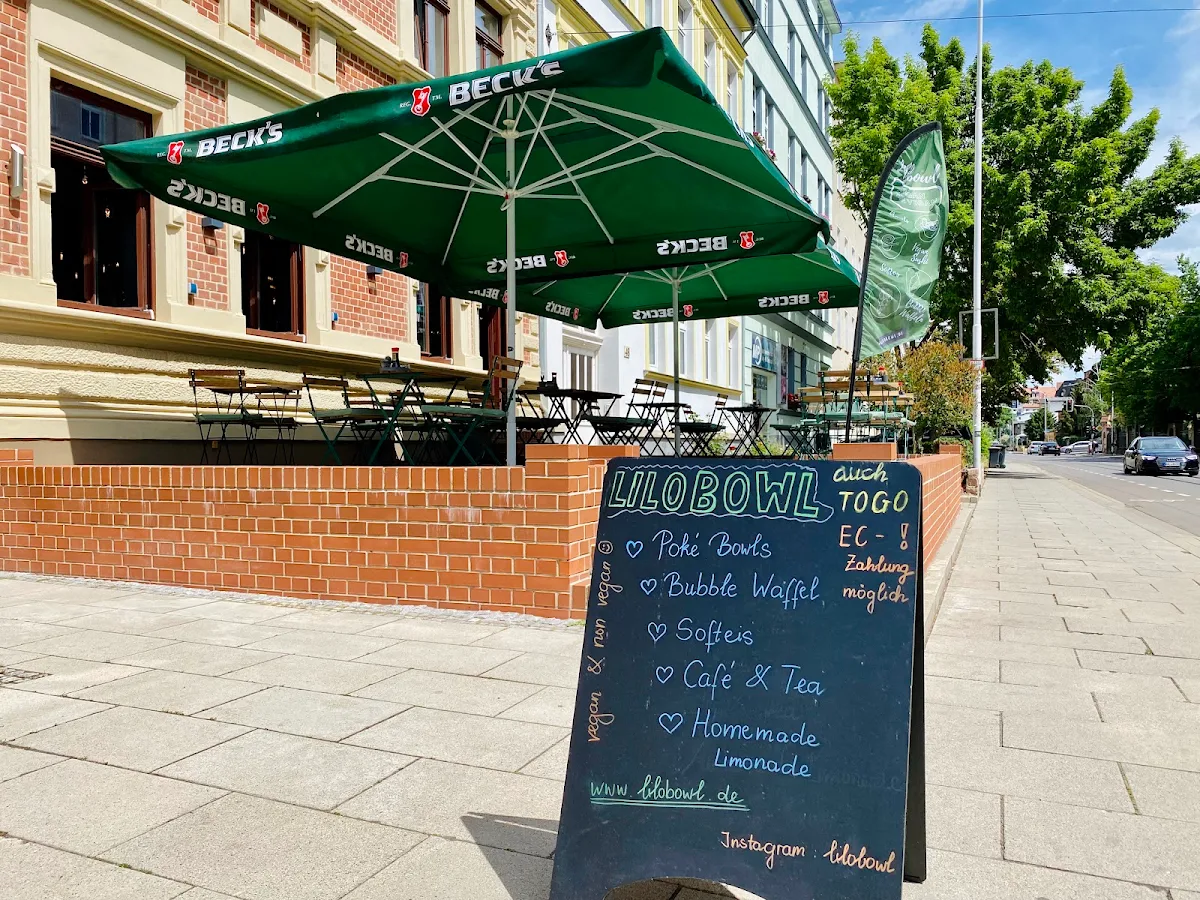 BECK'S
BECK'S
BECK'S
BECK'S
BECK'S
BECK'S
BECK'S
BECK'S
BECK'S
BECK'S
lilobowl
LILOBOWL
auch
TOGO
EC- !
Zahlung
möglich
♡ Poké Bowls
♡ Bubble Waffel
♡ Softeis
♡ Café & Tea
♡ Homemade
Limonade
vegan & non vegan ☺
www.lilobowl.de
Instagram : lilobowl